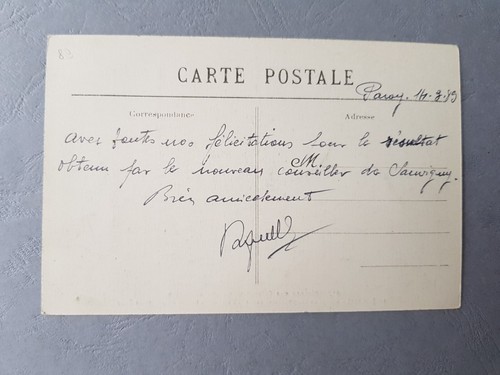 83
CARTE POSTALE
Paray, 14-3-83
Correspondance
Adresse
avec toutes nos félicitations pour le résultat
obtenu par le nouveau conseiller de Sauvigny.
M.
Bien amicalement